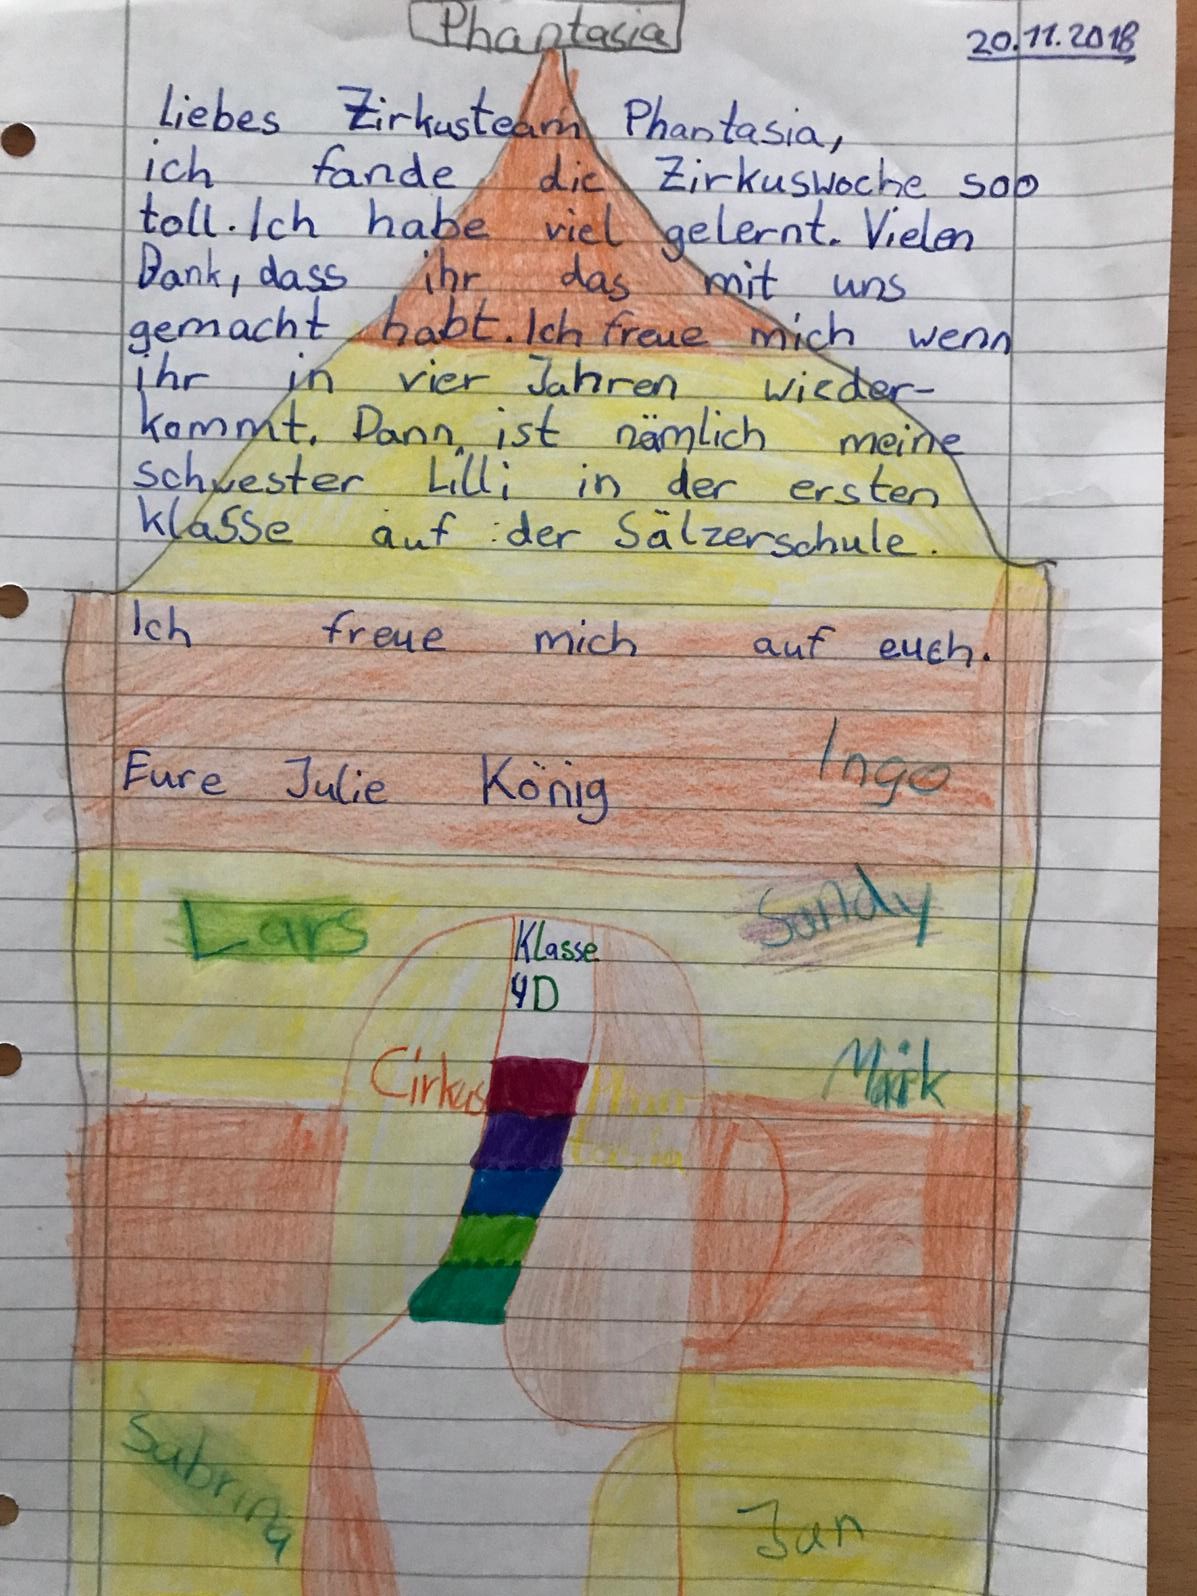 Phantasia
20.11.2018
Liebes Zirkusteam Phantasia,
ich fande die Zirkuswoche soo
toll. Ich habe viel gelernt. Vielen
Dank, dass ihr das mit uns
gemacht habt. Ich freue mich wenn
ihr in vier Jahren wieder-
kommt. Dann ist nämlich meine
schwester Lilli in der ersten
klasse auf der Sälzerschule.
Ich freue mich auf euch.
Eure Julie König
Ingo
Lars
Sandy
Klasse
4D
Cirkus
Phan
tasia
Maik
Sabrina
Jan